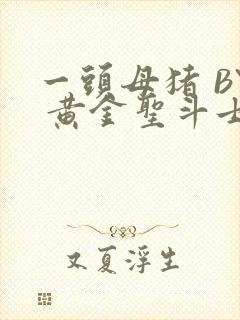 一頭母猪 BY
黄金聖斗士
又夏浮生